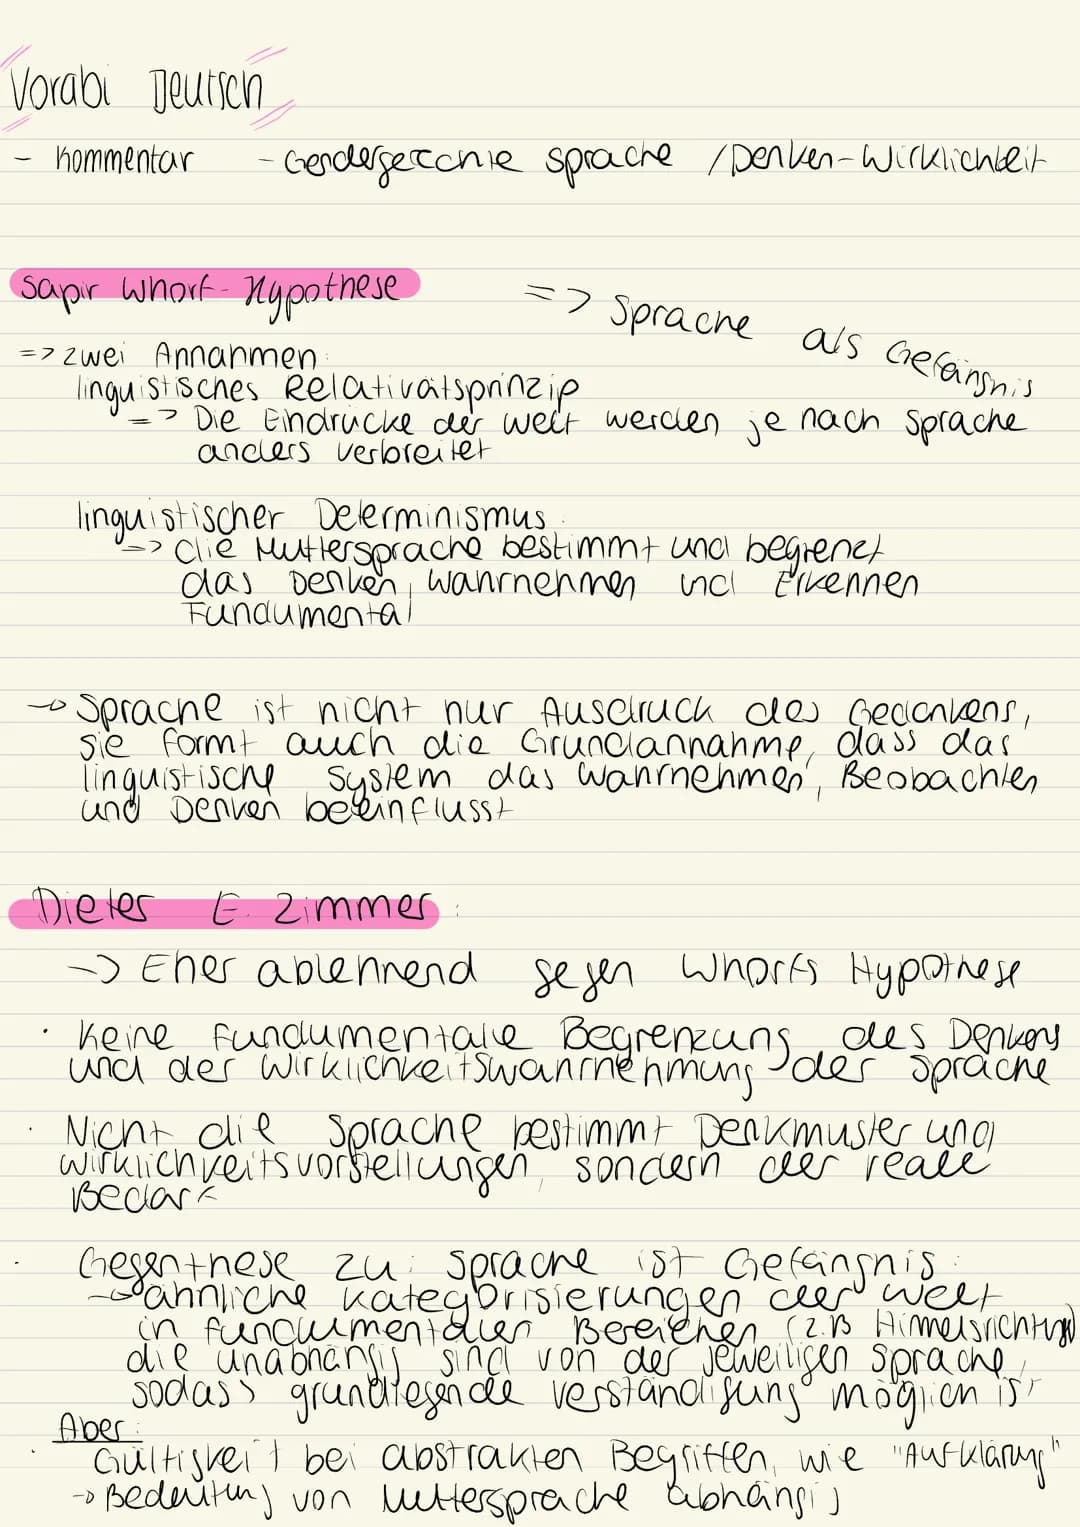 Vorabi Deutsch
- Kommentar - Gendergerechte Sprache / Denken-Wirklichkeit
Sapir Whorf-Hypothese
=> Sprache als Gefängnis
=> zwei Annahmen:
linguistisches Relativitätsprinzip
=> Die Eindrücke der Welt werden je nach Sprache
anders verbreitet
linguistischer Determinismus
=> die Muttersprache bestimmt und begrenzt
das Denken, Wahrnehmen und Erkennen
Fundumental
→ Sprache ist nicht nur Ausdruck des Gedankens,
sie formt auch die Grundannahme, dass das
linguistische System das Wahrnehmen, Beobachten
und Denken beeinflusst
Dieter E. Zimmer:
-> Eher ablehnend gegen Whorfs Hypothese
· Keine fundumentale Begrenzung des Denkens
und der Wirklichkeitswahrnehmung der Sprache
· Nicht die Sprache bestimmt Denkmuster und
Wirklichkeitsvorstellungen, sondern der reale
Bedarf
· Gegenthese zu: Sprache ist Gefängnis:
→ ähnliche Kategorisierungen der Welt
in fundumentalen Bereichen (z.B Himmelsrichtung)
die unabhängig sind von der jeweiligen Sprache,
sodass grundlegende Verständigung möglich ist
Aber:
· Gültigkeit bei abstrakten Begriffen, wie "Aufklärung"
→ Bedeutung von Muttersprache abhängig